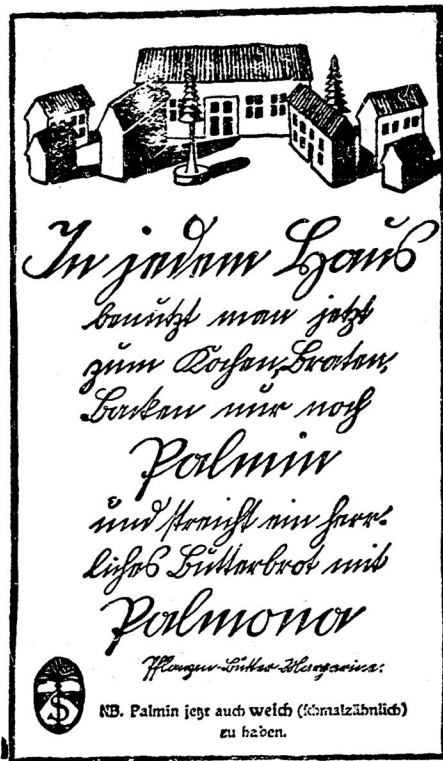 In jedem Haus
benützt man jetzt
zum Kochen, Braten,
Backen nur noch
Palmin
und streicht ein herr-
liches Butterbrot mit
Palmona
Pflanzen-Butter-Margarine.
S
NB. Palmin jetzt auch weich (schmalzähnlich)
zu haben.